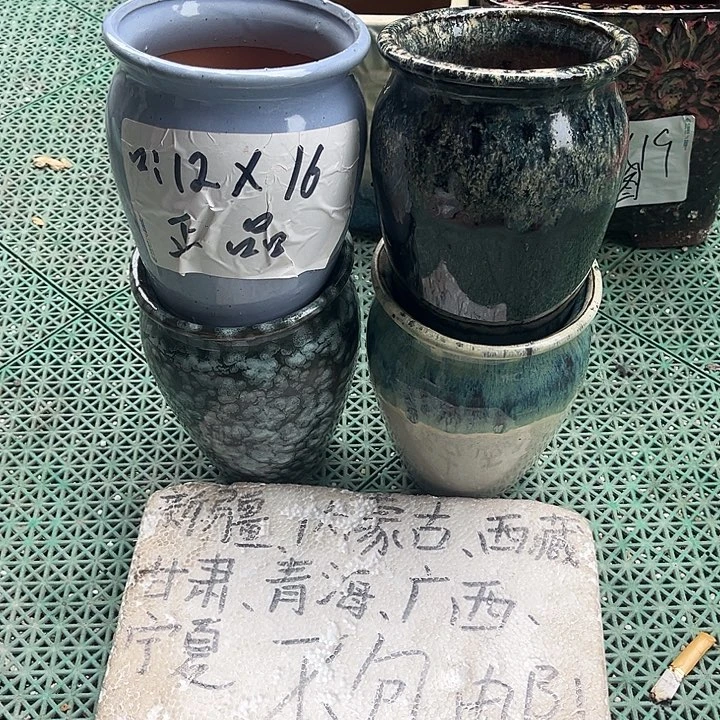 口:12 X 16
正品
新疆、内蒙古、西藏
甘肃、青海、广西、
宁夏 不包邮